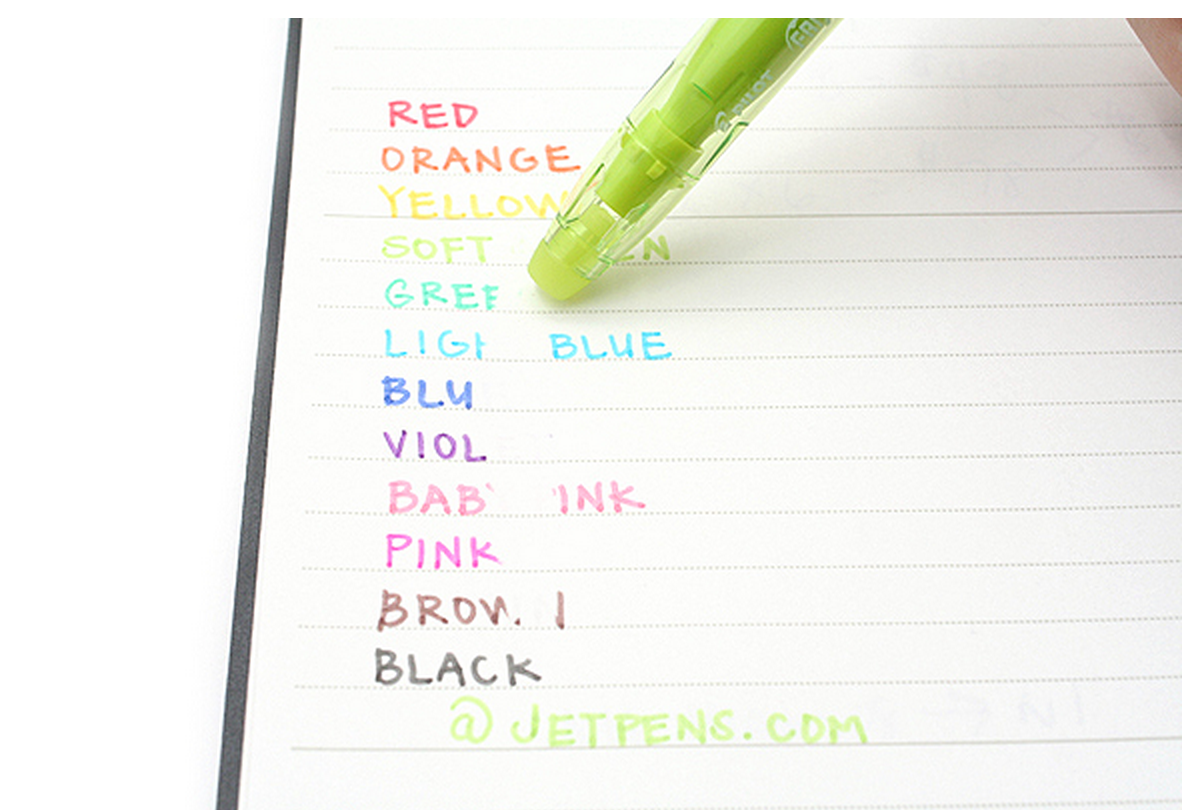 PILOT
RED
ORANGE
YELLOW
SOFT EN
GREE
LIGH BLUE
BLU
VIOL
BAB INK
PINK
BROW
BLACK
@ JETPENS.COM